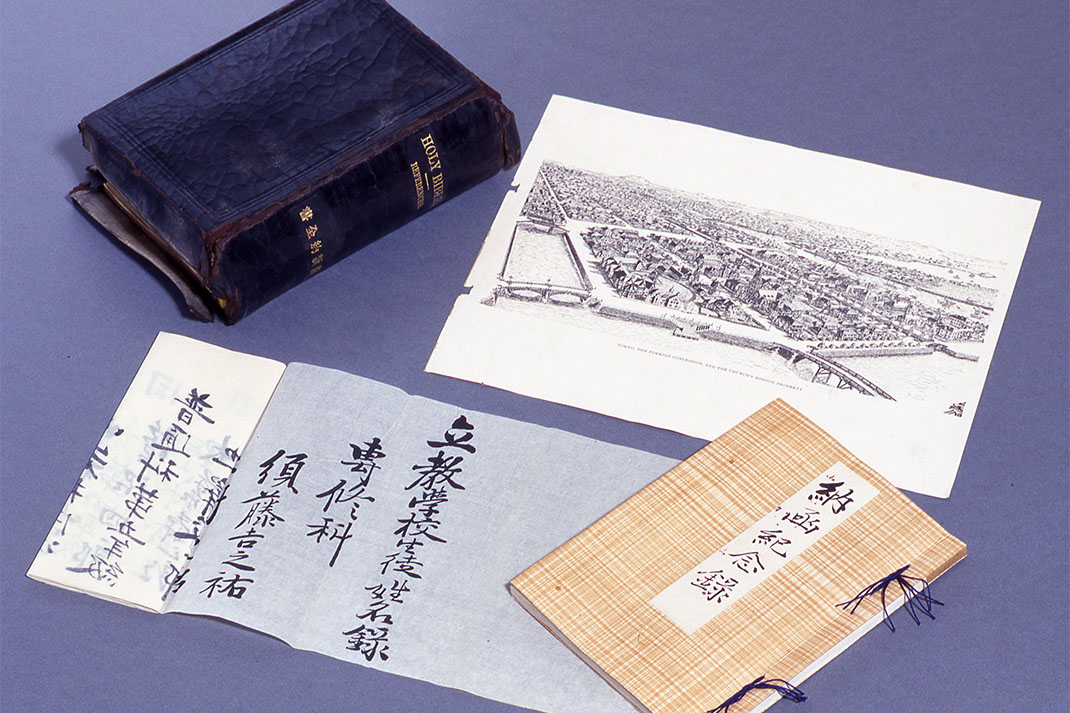 HOLY BIBLE
REFERENCE
書全約新舊
TOKYO, THE FOREIGN CONCESSION, AND THE CHURCH'S MISSION PROPERTY
立教學校生徒姓名録
專修科
須藤吉之祐
普通科第五年級
納函紀念録